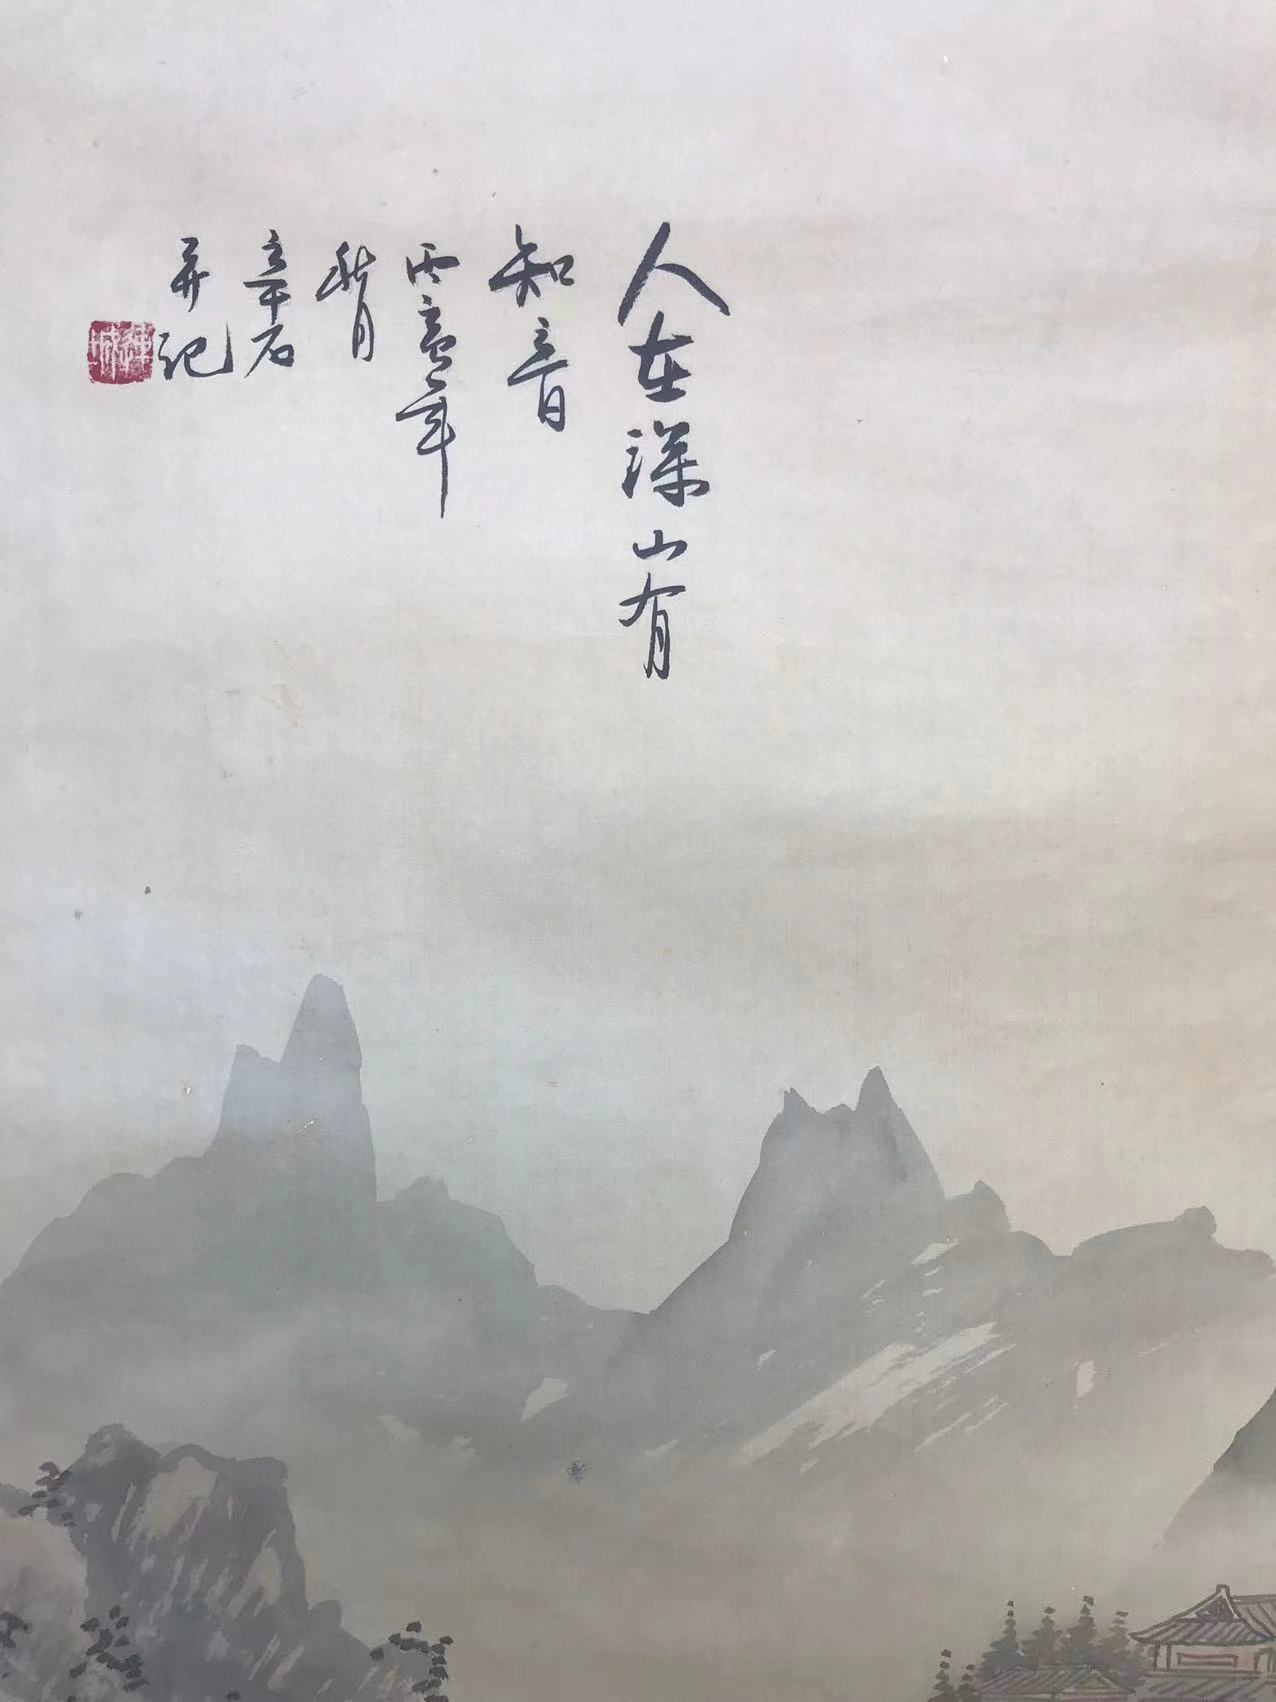 人在深山有
知音
丙寅年
秋月
辛石
并记
連城